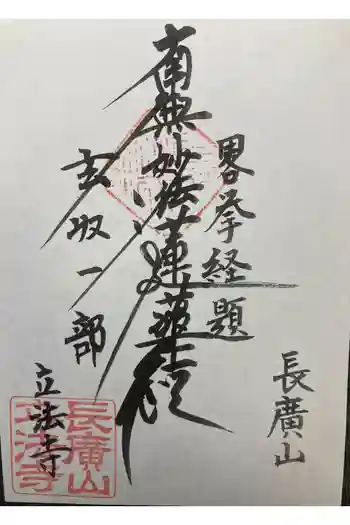 長廣山
畧挙経題
南無妙法蓮華経
玄収一部
立法寺
長廣山
立法寺